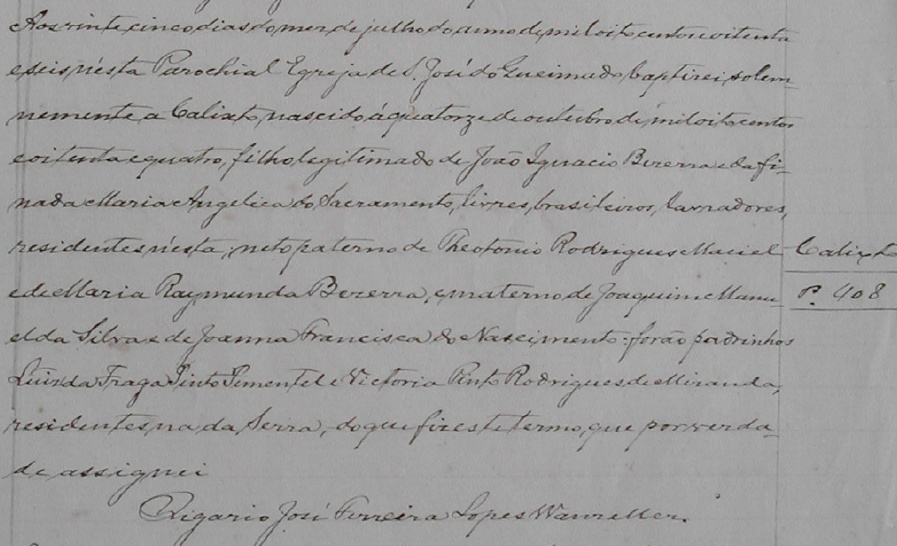 Aos vinte cinco dias do mez de julho do anno de mil oito centos e oitenta
e seis n'esta Parochial Egreja de S. José do Queimado baptizei, solem-
nemente a Calixto, nascido á quatorze de outubro de mil oito centos
e oitenta e quatro, filho legitimado de João Ignacio Bezerra e da fi-
nada Maria Angelica do Sacramento, livres, brasileiros, lavradores,
residentes n'esta; neto paterno de Theotonio Rodrigues Maciel
e de Maria Raymunda Bezerra, e materno de Joaquim Manu-
el da Silva e de Joanna Francisca do Nascimento: forão padrinhos
Luiz da Fraga Pinto Pimentel e Victoria Pinto Rodrigues de Miranda,
residentes na da Serra, do que fiz este termo, que por verda-
de assignei
Vigario José Ferreira Lopes Wanzeller.
Calixto
P. 408